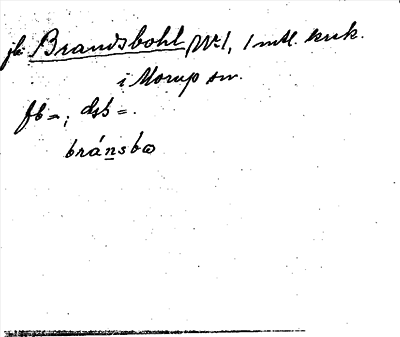 jb Brandsbohl, N:r 1, 1 mtl. krsk.
i Morup sn.
fb =; dsb =.
bránsbω